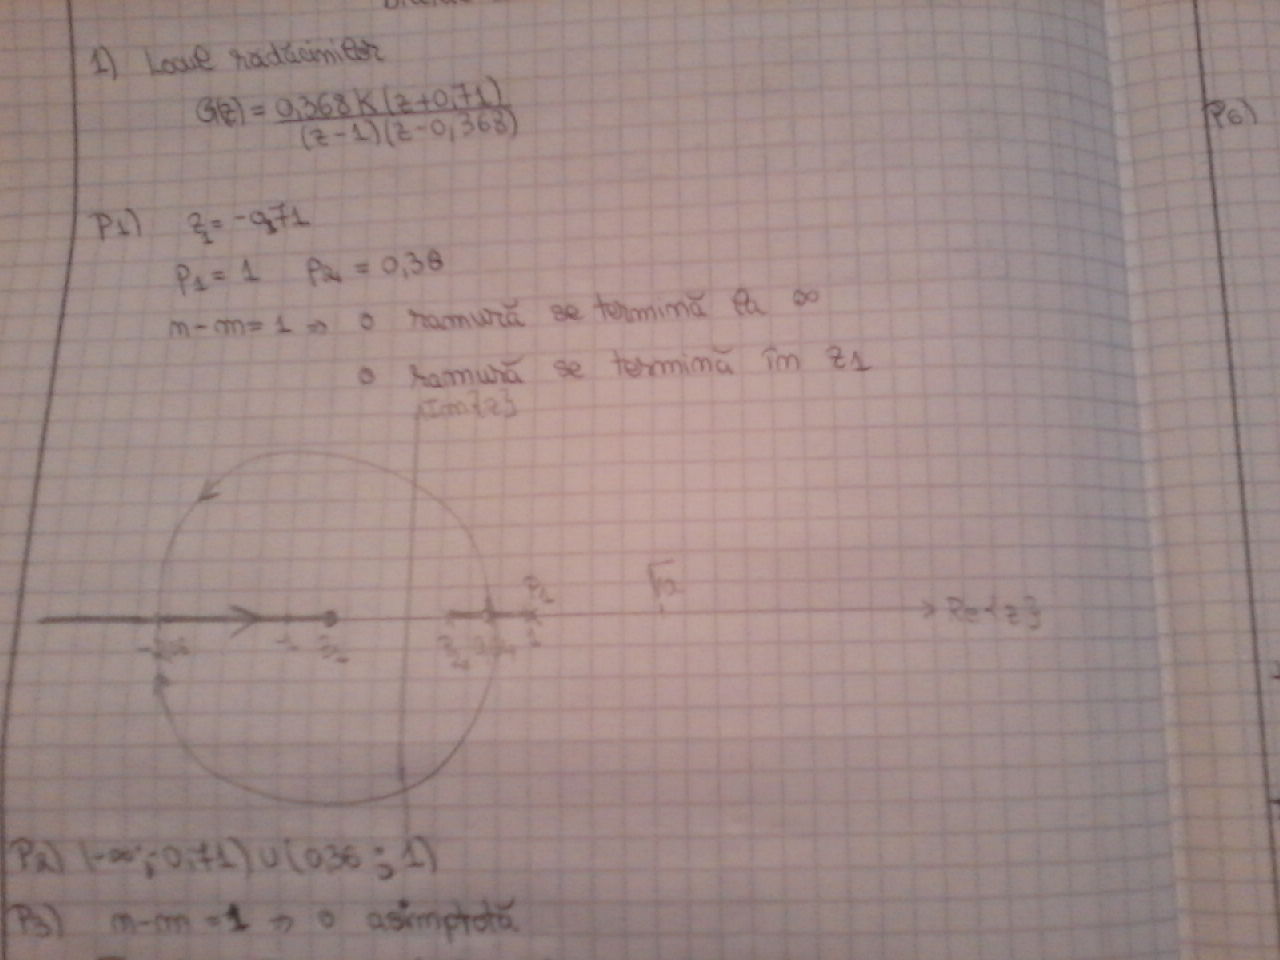 1) Locul rădăcinilor
G(z) = 0,368K(z+0,71)
(z-1)(z-0,368)
P1) z1 = -0,71
P1 = 1 P2 = 0,36
n-m = 1 => o ramură se termină la ∞
o ramură se termină în z1
Im{z}
P1
-1
1
Re{z}
P6)
P2) (-∞; -0,71) ∪ (0,36; 1)
P3) n-m = 1 => o asimptotă